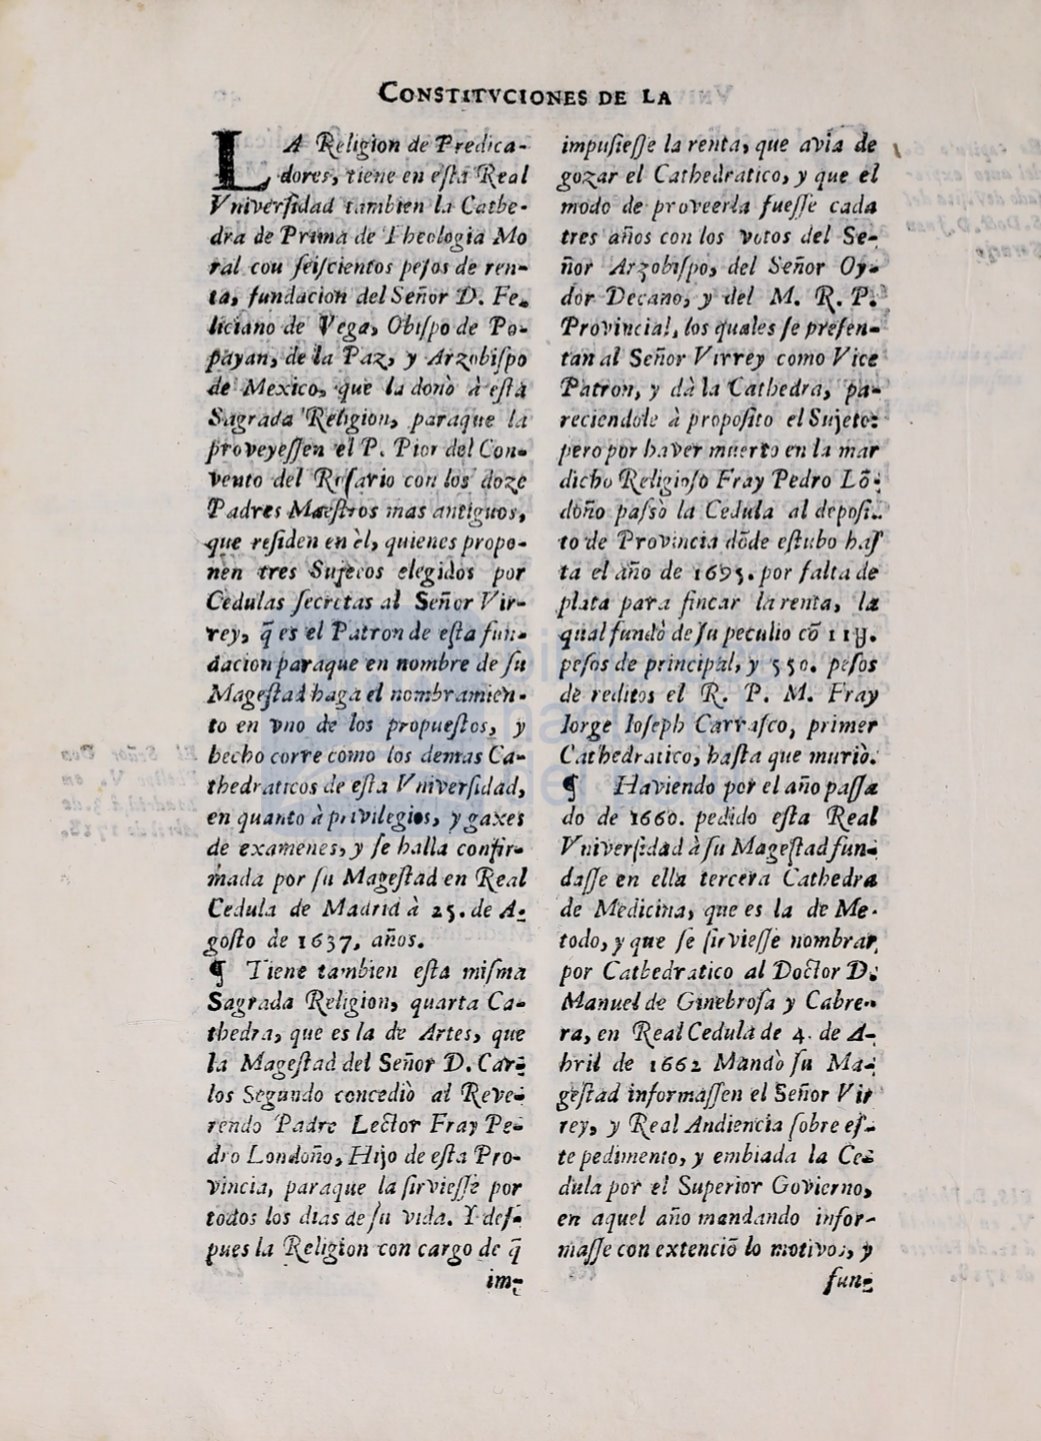 CONSTITVCIONES DE LA
LA Religion de Predica-
dores, tiene en esta Real
Vniversidad tambien la Cathe-
dra de Prima de Theologia Mo
ral con seiscientos pesos de ren-
ta, fundacion del Señor D. Fe-
liciano de Vega, Obispo de Po-
payan, de la Paz, y Arzobispo
de Mexico, que la donò à esta
Sagrada Religion, paraque la
proveyessen el P. Pior del Con-
vento del Rosario con los doze
Padres Maestros mas antiguos,
que residen en èl, quienes propo-
nen tres Sujetos elegidos por
Cedulas secretas al Señor Vir-
rey, q̃ es el Patron de esta fun-
dacion paraque en nombre de su
Magestad haga el nombramien-
to en vno de los propuestos, y
hecho corre como los demas Ca-
thedraticos de esta Vniversidad,
en quanto à privilegios, y gaxes
de examenes, y se halla confir-
mada por su Magestad en Real
Cedula de Madrid à 25. de A-
gosto de 1637, años.
¶ Tiene tambien esta misma
Sagrada Religion, quarta Ca-
thedra, que es la de Artes, que
la Magestad del Señor D. Car-
los Segundo concediò al Reve-
rendo Padre Lector Fray Pe-
dro Londoño, Hijo de esta Pro-
vincia, paraque la sirviesse por
todos los dias de su vida. Y des-
pues la Religion con cargo de q̃
im-
impusiesse la renta, que avia de
gozar el Cathedratico, y que el
modo de proveerla fuesse cada
tres años con los votos del Se-
ñor Arzobispo, del Señor Oy-
dor Decano, y del M. R. P.
Provincial, los quales se presen-
tan al Señor Virrey como Vice
Patron, y dà la Cathedra, pa-
reciendole à proposito el Sujeto:
pero por haver muerto en la mar
dicho Religioso Fray Pedro Lō-
doño passò la Cedula al deposi-
to de Provincia dōde estubo has
ta el año de 1695. por falta de
plata para fincar la renta, la
qual fundò de su peculio cō 11y.
pesos de principal, y 550. pesos
de reditos el R. P. M. Fray
Iorge Ioseph Carrasco, primer
Cathedratico, hasta que muriò.
¶ Haviendo por el año passa
do de 1660. pedido esta Real
Vniversidad à su Magestad fun-
dasse en ella tercera Cathedra
de Medicina, que es la de Me-
todo, y que se sirviesse nombrar
por Cathedratico al Doctor D.
Manuel de Ginebrosa y Cabre-
ra, en Real Cedula de 4. de A-
bril de 1662 Mandò su Ma-
gestad informassen el Señor Vir
rey, y Real Andiencia sobre es-
te pedimento, y embiada la Ce-
dula por el Superior Govierno,
en aquel año mandando infor-
masse con extenciō lo motivos, y
fun-